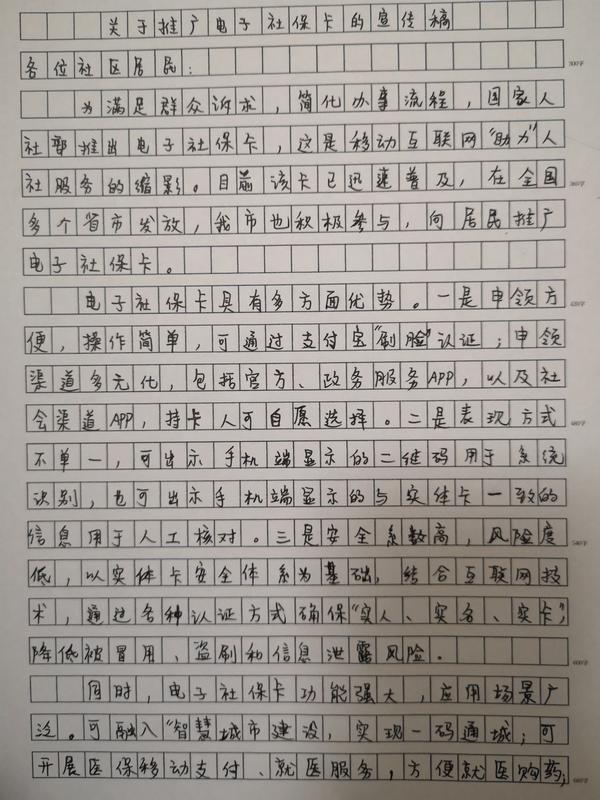 关于推广电子社保卡的宣传稿
各位社区居民：
300字
为满足群众诉求，简化办事流程，国家人
社部推出电子社保卡，这是移动互联网“助力”人
社服务的缩影。目前该卡已迅速普及，在全国
360字
多个省市发放，我市也积极参与，向居民推广
电子社保卡。
电子社保卡具有多方面优势。一是申领方
420字
便，操作简单，可通过支付宝“刷脸”认证；申领
渠道多元化，包括官方、政务服务APP，以及社
会渠道APP，持卡人可自愿选择。二是表现方式
480字
不单一，可出示手机端显示的二维码用于系统
识别，也可出示手机端显示的与实体卡一致的
信息用于人工核对。三是安全系数高，风险度
540字
低，以实体卡安全体系为基础，结合互联网技
术，通过各种认证方式确保“实人、实名、实卡”，
降低被冒用、盗刷和信息泄露风险。
600字
同时，电子社保卡功能强大，应用场景广
泛。可融入“智慧城市建设，实现一码通城；可
开展医保移动支付、就医服务，方便就医购药；
660字